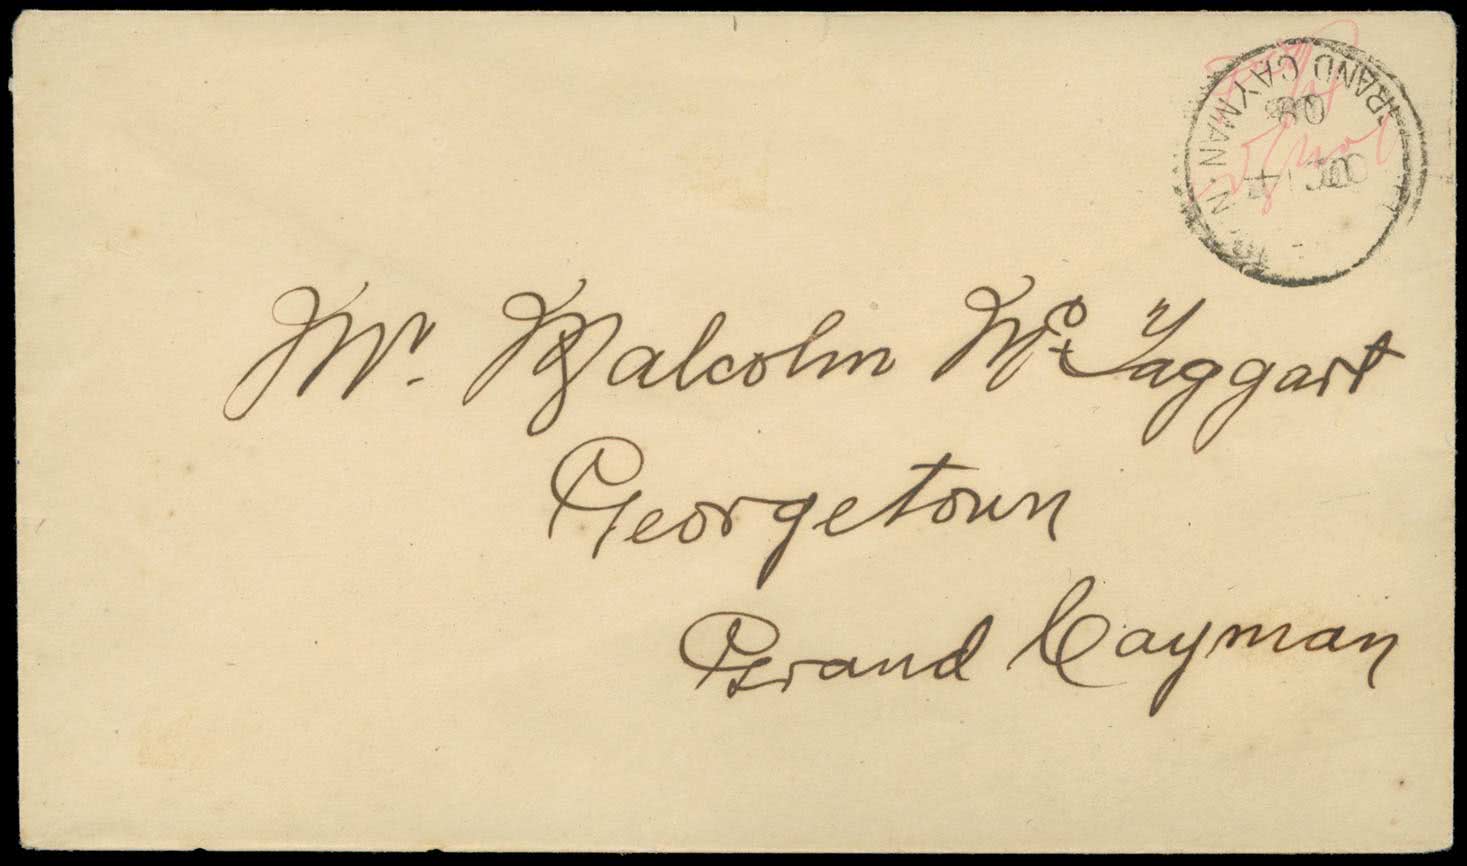 GRAND CAYMAN
Mr. Malcolm McTaggart
Georgetown
Grand Cayman